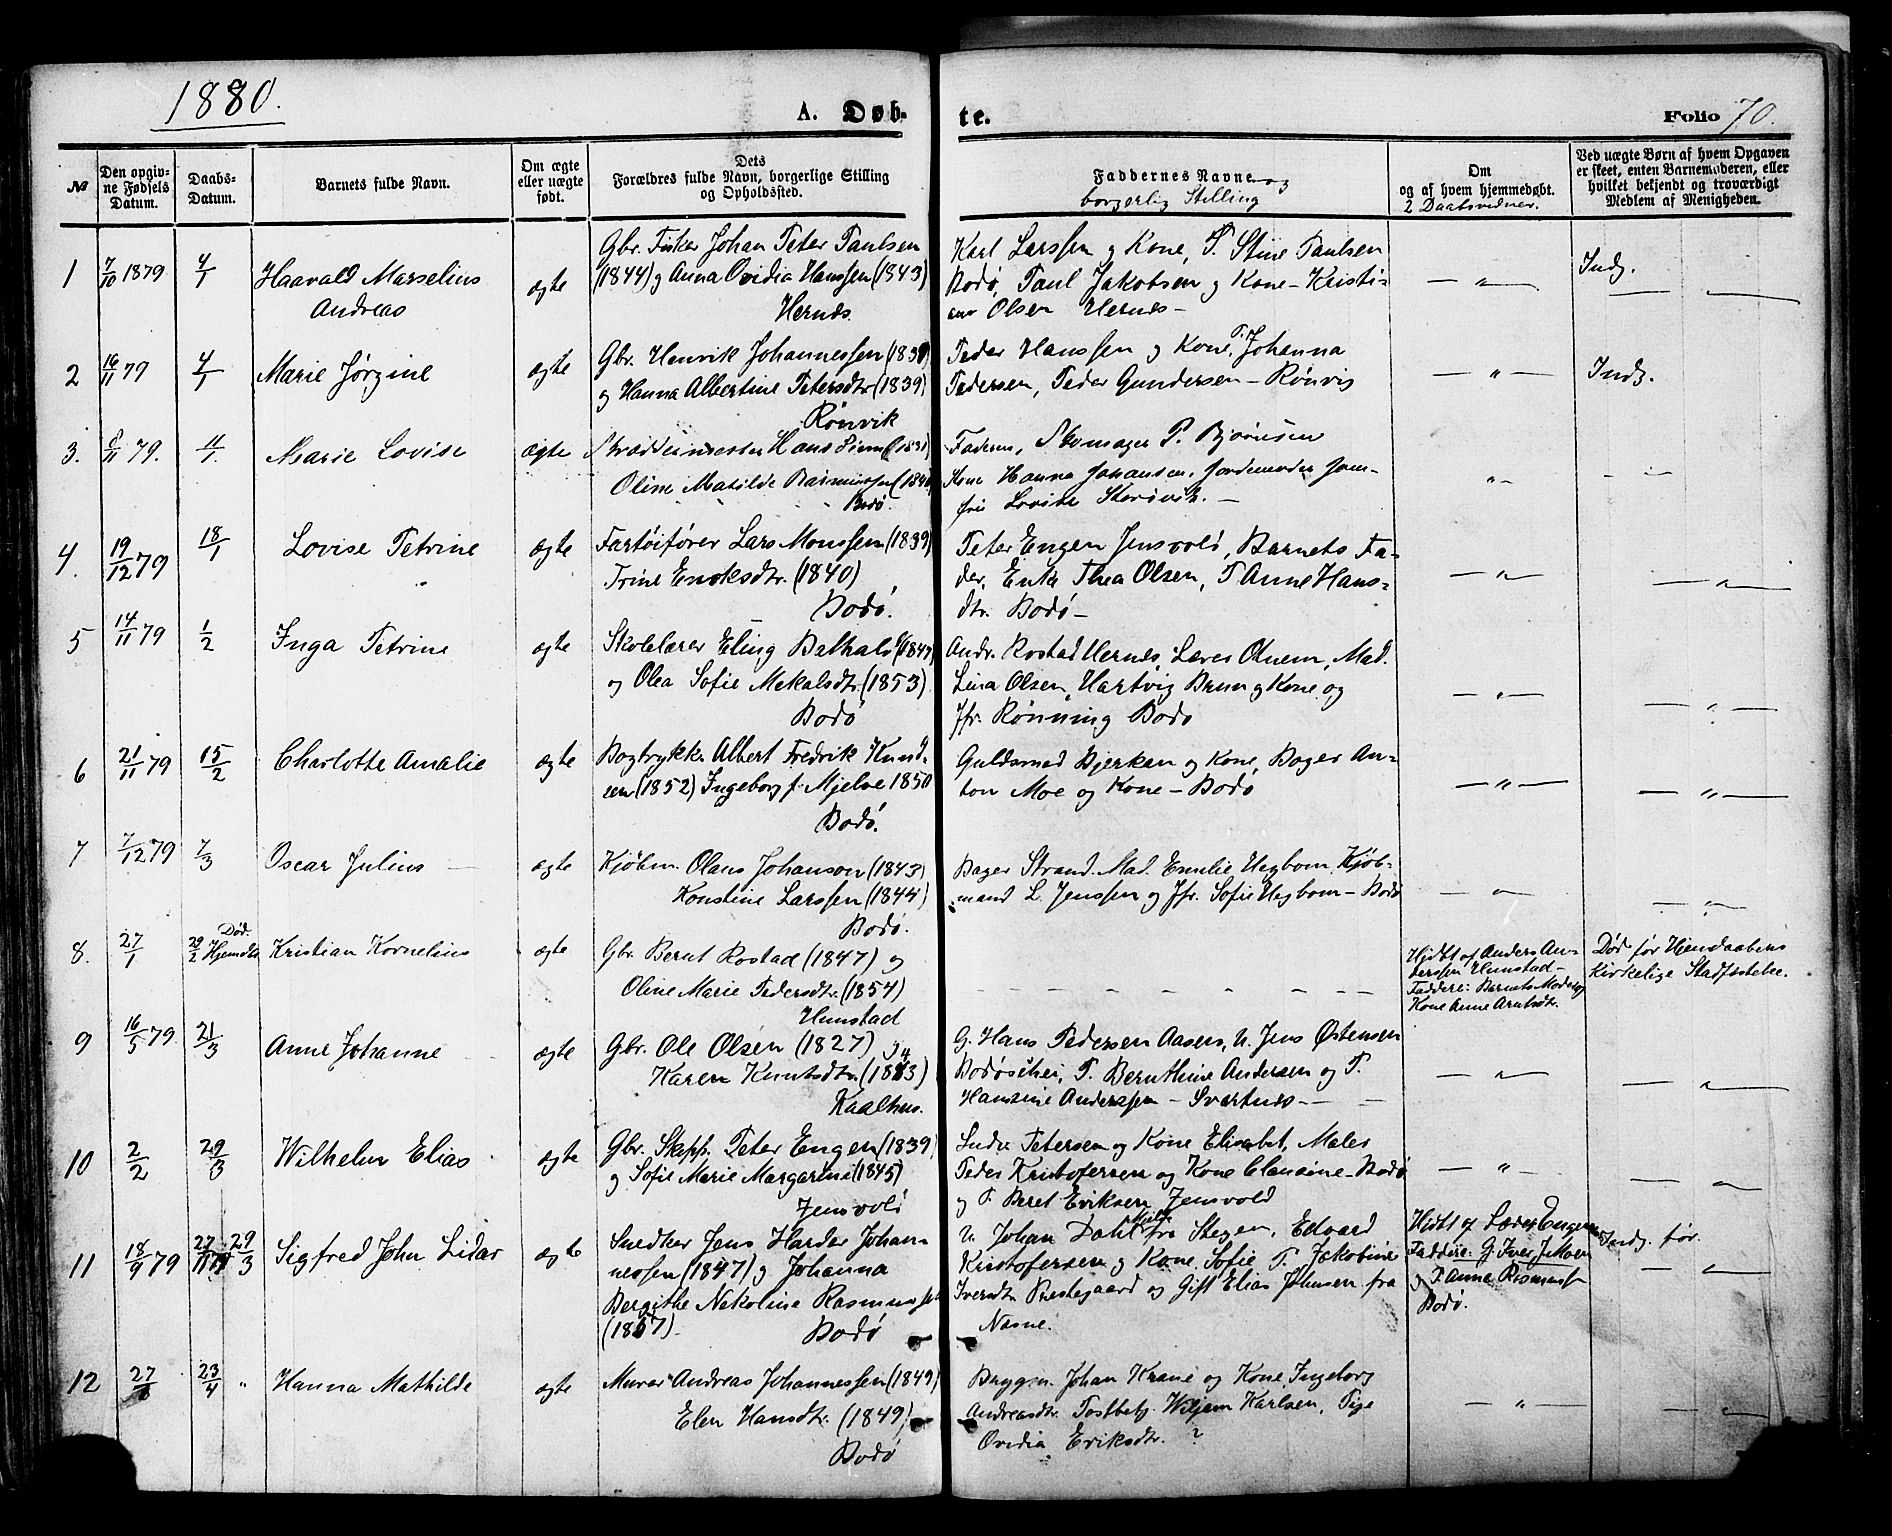 1880.
A. Døb-
te.
Folio 70.
№
Den opgivne Fødsels Datum.
Daabs-Datum.
Barnets fulde Navn.
Om ægte eller uægte født.
Dets Forældres fulde Navn, borgerlige Stilling og Opholdssted.
Faddernes Navne og borgerlig Stilling
Om og af hvem hjemmedøbt. 2 Daabsvidner.
Ved uægte Børn af hvem Opgaven er skeet, enten Barnemoderen, eller hvilket bekjendt og troværdigt Medlem af Menigheden.
1 7/10 1879 4/1 Haavald Marselius Andreas ægte
Gbr. Fisker Johan Peter Paulsen
(1844) og Anna Ovidia Hanssen (1843)
Hernes.
Karl Larssen og Kone, P. Stine Paulsen
Bodø, Paul Jakobsen og Kone - Kristi-
ane Olsen Hernes -
— " — Indg.
2 16/11 79 4/1 Marie Jørgine ægte
Gbr. Henrik Johannessen
og Hanna Albertine Petersdtr (1839)
Rønvik
Peder Hanssen og Kone, P. Johanna
Pedersen, Peder Gundersen - Rønvig
— " — Indg.
3. 8/11 79. 11/1 Marie Lovise ægte
Skræddermester Hans
Oline Matilde Rasmussen
Bodø.
Faderen, Skomager P. Bjørnsen
Kone Hanna Johansen, Jordemoder Jom-
fru Lovise
" -
4. 19/12 79 18/1 Lovise Petrine ægte
Fartøifører Lars Monssen (1839)
Trine Enoksdtr. (1840)
Bodø.
Peter Engen Jensvold, Barnets Fa-
der, Enke Thea Olsen, P. Anne Hans-
dtr. Bodø -
— " —
5 14/11 79 1/2 Inga Petrine ægte
Skolelærer Eling
og Olea Sofie Mekalsdtr. (1853)
Bodø
Andr. Rostad Hernes, Lærer Otnem, Mad.
Lina Olsen, Hartvig Brun og Kone og
Jfr. Rønning Bodø
— " —
6 21/11 79 15/2 Charlotte Amalie ægte
Bogtrykk. Albert Fredrik Knud-
sen (1852) Ingeborg f. Mjelve 1850
Bodø.
Guldsmed Bjerkan og Kone, Bager An-
ton Moe og Kone - Bodø
— " —
7 7/12 79 7/3 Oscar Julius ægte
Kjøbm. Olaus Johanson (1843)
Konstine Larssen (1844)
Bodø.
Bager Strand. Mad. Emilie Hegbom, Kjøb-
mand L. Jenssen og Jfr. Sofie Hegbom - Bodø
— " —
8. 27/1 29/2 Død. Hjemdbt. Kristian Kornelius ægte
Gbr. Bernt Rostad (1847) og
Oline Marie Pedersdtr. (1854)
Hunstad
Hjdbt af Anders An-
derssen Hunstad -
Faddere: Barnets Moder og
Kone Anne Arntsdtr.
Død før Hjemdaabens
kirkelige Stadfæstelse.
9 16/5 79. 21/3 Anne Johanne ægte
Gbr. Ole Olsen (1827) og
Karen Knutsdtr.
Kaalhus.
G. Hans Pedersen Aasen, U. Jens Østensen
Bodøschei, P. Bernthine Andersen og P.
Hansine Anderssen - Svartnes -
— " —
10 2/2 29/3 Wilhelm Elias ægte
Gbr. Skipp. Peter Engen (1839)
og Sofie Marie Margarine (1845)
Jensvold
Petersen og Kone Elisabet, Maler
Peder Kristofersen og Kone Clausine - Bodø
og P. Beret Eriksen, Jensvold
— " —
11 18/9 79 29/3 Sigfred John Lidar ægte
Snedker Jens Harder Johan-
nessen (1847) og Johanna
Bergithe Nekoline Rasmussen
Bodø
U. Johan Dahl fra Stegen, Edvard
Kristofersen og Kone, Sofie P. Jakobine
Iversdtr Prestegaard og Gift Elias Johnsen fra
Næsne.
Hjdbt af Lærer Engen
Faddere: G. Iver J. Moen
og P. Anne
Bodø.
Indg. før.
12 27/ 23/4 Hanna Mathilde ægte
Murer Andreas Johannessen (1849)
Elen Hansdtr. (1849)
Bodø
Johan Krane og Kone Ingeborg
Andreasdtr. Postbetj. Wiljem Karlsen, Pige
Ovidia Eriksdtr. ?
— " —